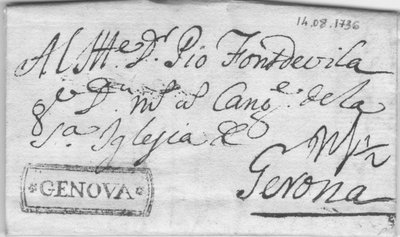 14.08.1736
Al Ille Dr Pio Fontdevila
ge Dl ms as Cange de la
Sa Iglesia de
Gerona
*GENOVA*